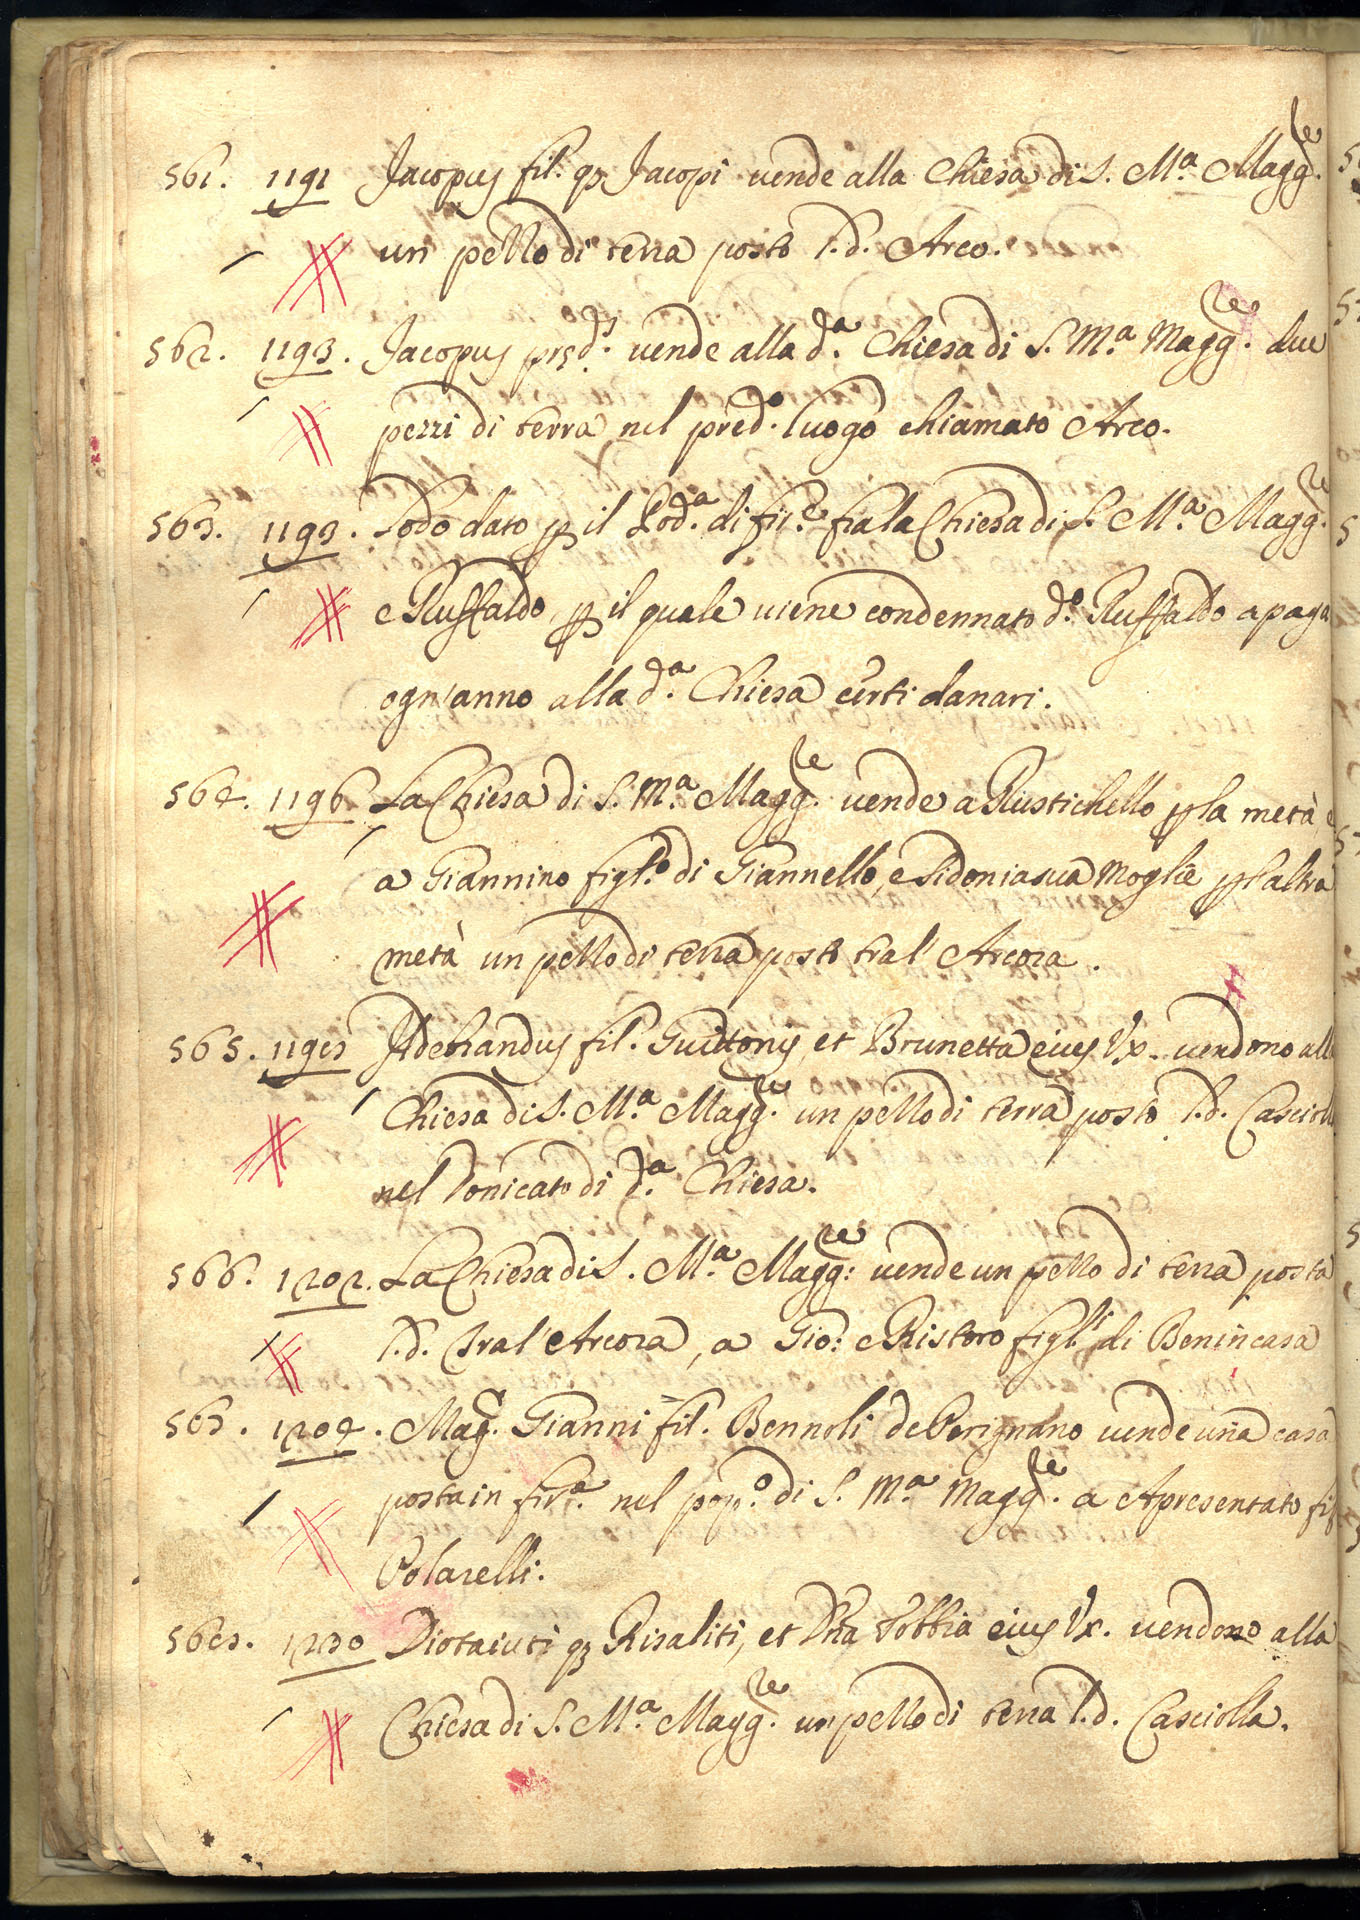 561. 1191 Jacopus fil. qz Jacopi vende alla Chiesa di S. Mª Magg.re
un pezzo di terra posto l.d. Arco.
562. 1193. Jacopus prẽd.s vende alla d.ª Chiesa di S. M.ª Magg.re due
pezzi di terra nel pred.º luogo chiamato Arco.
563. 1193. Lodo dato p il Pod.ª di fir.e fra la Chiesa di S. M.ª Magg.re
e Ruffaldo, p il quale viene condennato d.º Ruffaldo a paga
ogn'anno alla d.ª Chiesa certi danari.
564. 1196 La Chiesa di S. M.ª Magg.re vende a Rustichello p la metà, e
a Giannino figl.º di Giannello, e Sidonia sua Moglie p l'altra
metà un pezzo di terra posto tral' Arcora.
565. 1197 Ildebrandus fil. Guittonis, et Brunetta eius Vx. vendono alla
Chiesa di S. M.ª Magg.re un pezzo di terra posto l.d. Casciolla
nel Donicato di d.ª Chiesa.
566. 1202. La Chiesa di S. M.ª Magg.re vende un pezzo di terra posta
l.d. tral' Arcora, a Gio: e Ristoro figl.i di Benincasa
567. 1204. Mag. Gianni fil. Bennoli de Perignano vende una casa
posta in fir.ª nel pop.º di S. M.ª Magg.re a Apresentato fil
Polarelli.
568. 1230 Diotaiuti qz Risaliti, et Dña Tobbia eius Vx. vendono alla
Chiesa di S. M.ª Magg.re un pezzo di terra l.d. Casciolla.